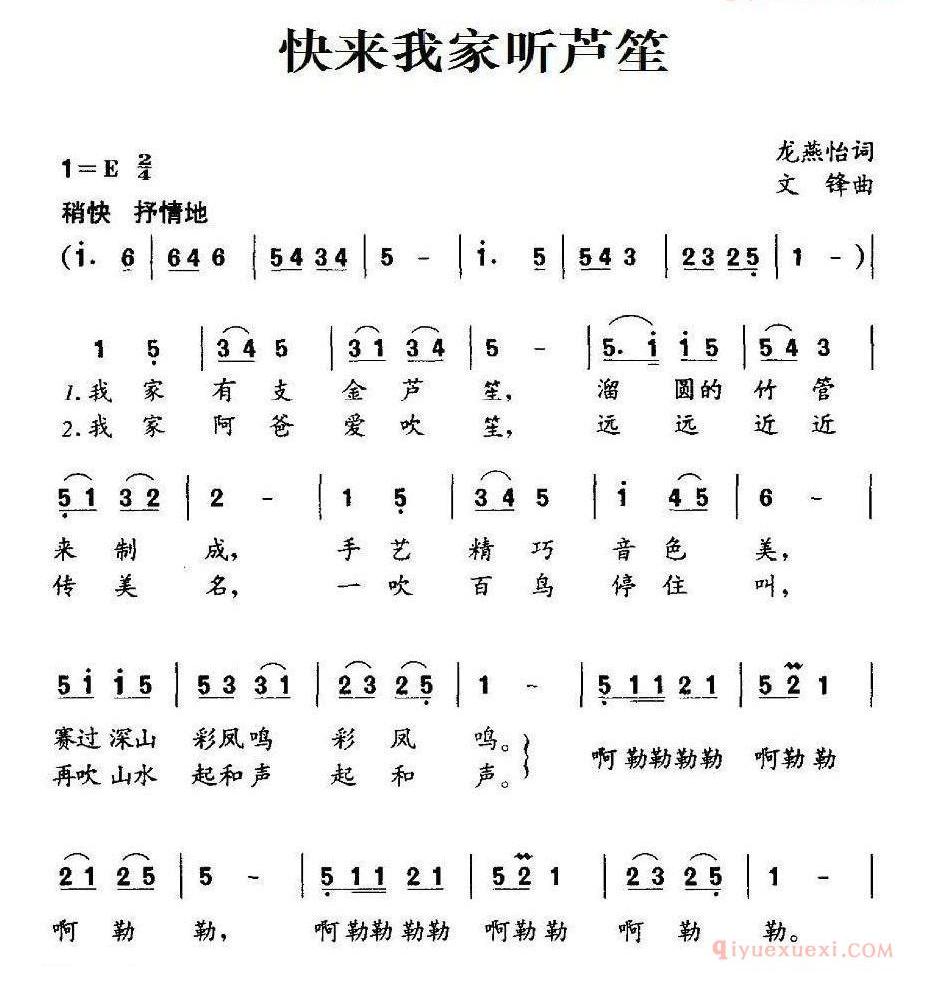 快来我家听芦笙
龙燕怡词
1=E 2/4
文 锋曲
稍快 抒情地
(i· 6 | 64 6 | 54 34 | 5 - | i· 5 | 54 3 | 23 25 | 1 - )|
1 5 | 34 5 | 31 34 | 5 - | 5· i i5 | 54 3 |
1.我 家 有 支 金 芦 笙, 溜 圆的 竹 管
2.我 家 阿 爸 爱 吹 笙, 远 远 近 近
51 32 | 2 - | 1 5 | 34 5 | i 45 | 6 - |
来 制 成, 手 艺 精 巧 音 色 美,
传 美 名, 一 吹 百 鸟 停 住 叫,
5i i5 | 53 31 | 23 25 | 1 - | 511 21 | 52 1 |
赛过 深山 彩凤鸣 彩 凤 鸣。 啊勒勒勒勒 啊勒勒
再吹 山水 起和声 起 和 声。
21 25 | 5 - | 511 21 | 52 1 | 23 25 | 1 - |
啊 勒 勒, 啊勒勒勒勒 啊勒勒 啊 勒 勒。
qiyuexuexi.COM